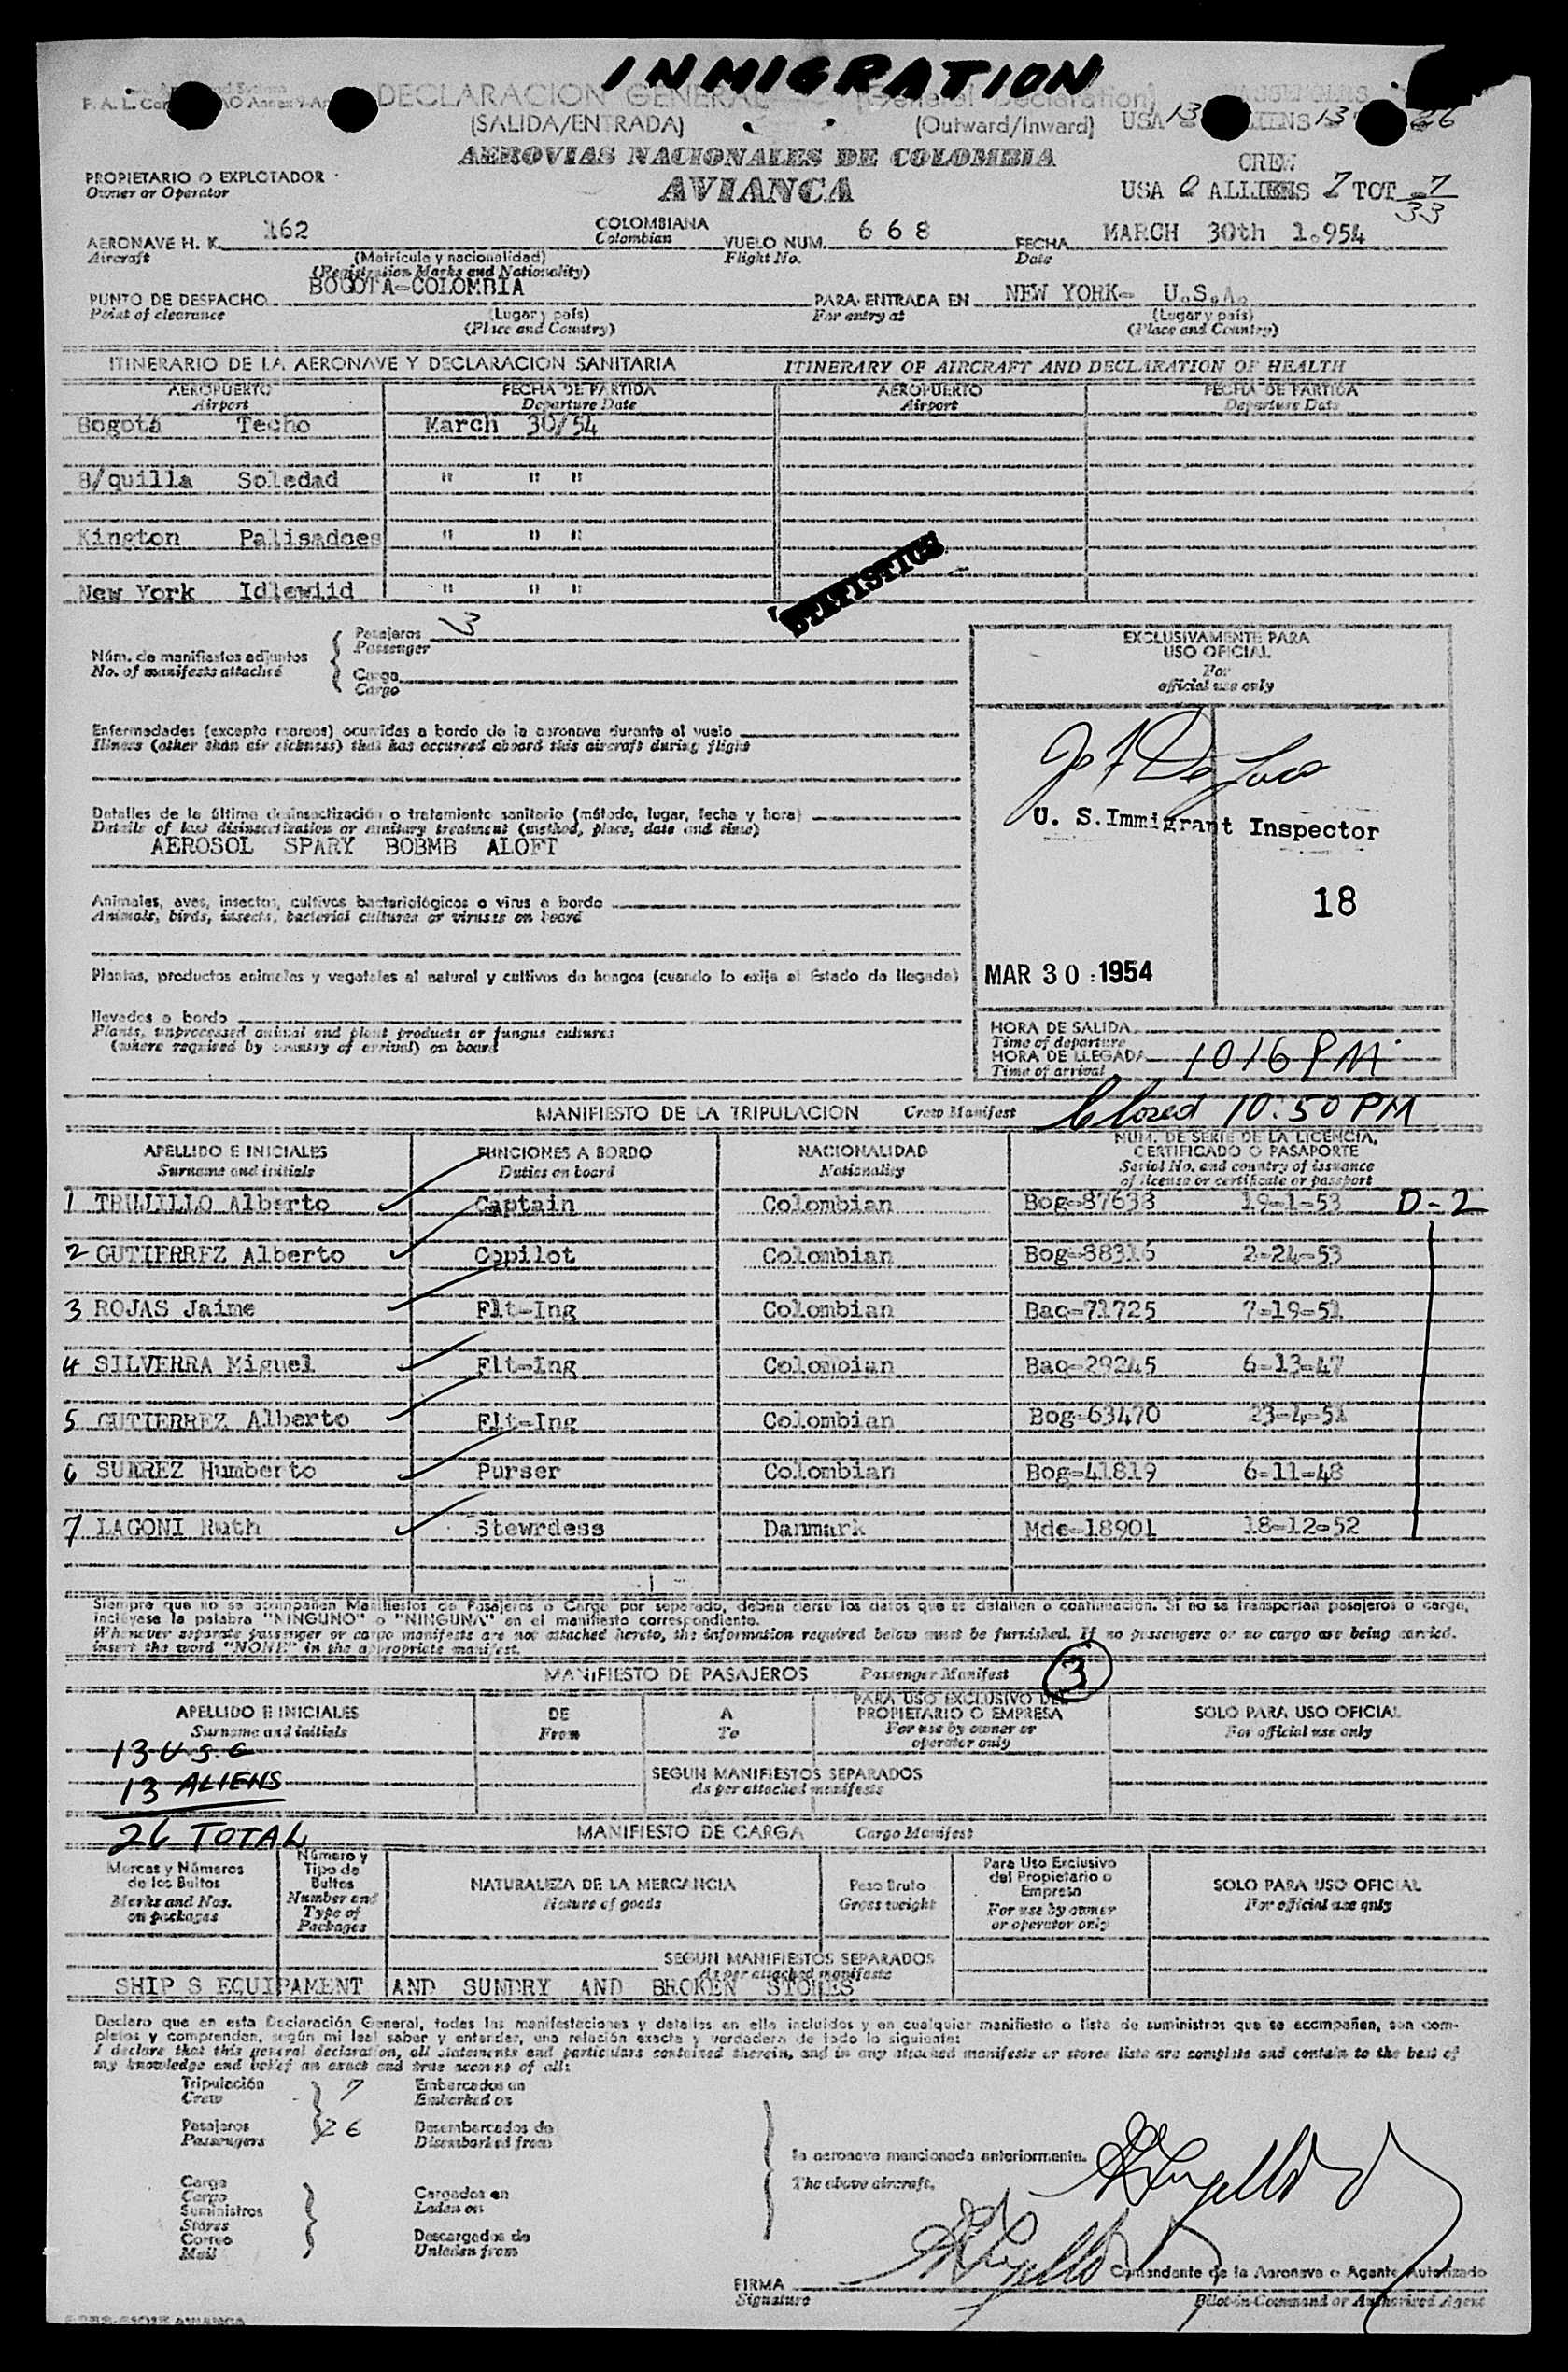 INMIGRATION
DECLARACION GENERAL (General Declaration)
(SALIDA/ENTRADA) (Outward/Inward)
USA 13 13 26
AEROVIAS NACIONALES DE COLOMBIA
AVIANCA
CREW
USA 0 ALLIENS 7 TOT 7
33
PROPIETARIO O EXPLOTADOR
Owner or Operator
AERONAVE H. K. 162 COLOMBIANA VUELO NUM. 668 FECHA MARCH 30th 1.954
Aircraft Colombian Flight No. Date
(Matrícula y nacionalidad)
(Registration Marks and Nationality)
PUNTO DE DESPACHO BOGOTA-COLOMBIA PARA ENTRADA EN NEW YORK- U.S.A.
Point of clearance (Lugar y país) For entry at (Lugar y país)
(Place and Country) (Place and Country)
ITINERARIO DE LA AERONAVE Y DECLARACION SANITARIA ITINERARY OF AIRCRAFT AND DECLARATION OF HEALTH
AEROPUERTO FECHA DE PARTIDA AEROPUERTO FECHA DE PARTIDA
Airport Departure Date Airport Departure Date
Bogotá Techo March 30/54
B/quilla Soledad " " "
Kington Palisadoes " " "
New York Idlewiid " " "
STATISTICS
Núm. de manifiestos adjuntos Pasajeros 3
No. of manifests attached Passenger
Carga
Cargo
EXCLUSIVAMENTE PARA
USO OFICIAL
For
official use only
Enfermedades (excepto mareos) ocurridas a bordo de la aeronave durante el vuelo
Illness (other than air sickness) that has occurred aboard this aircraft during flight
Detalles de la última desinsectización o tratamiento sanitario (método, lugar, fecha y hora)
Details of last disinsectization or sanitary treatment (method, place, date and time)
AEROSOL SPARY BOBMB ALOFT
U. S. Immigrant Inspector
18
Animales, aves, insectos, cultivos bacteriológicos o virus a bordo
Animals, birds, insects, bacterial cultures or viruses on board
MAR 30 1954
Plantas, productos animales y vegetales al natural y cultivos de hongos (cuando lo exija el Estado de llegada)
llevados a bordo
Plants, unprocessed animal and plant products or fungus cultures
(where required by country of arrival) on board
HORA DE SALIDA
Time of departure
HORA DE LLEGADA 1016 PM
Time of arrival
Closed 10:50 PM
MANIFIESTO DE LA TRIPULACION Crew Manifest
APELLIDO E INICIALES FUNCIONES A BORDO NACIONALIDAD NUM. DE SERIE DE LA LICENCIA, CERTIFICADO O PASAPORTE
Surname and initials Duties on board Nationality Serial No. and country of issuance of license or certificate or passport
1 TRUJILLO Alberto Captain Colombian Bog-87638 19-1-53 D-2
2 GUTIERREZ Alberto Copilot Colombian Bog-88316 2-24-53
3 ROJAS Jaime Flt-Ing Colombian Baq-71725 7-19-51
4 SILVERRA Miguel Flt-Ing Colombian Baq-29245 6-13-47
5 GUTIERREZ Alberto Flt-Ing Colombian Bog-63470 23-4-51
6 SUAREZ Humberto Purser Colombian Bog-41819 6-11-48
7 LAGONI Ruth Stewrdess Danmark Mde-18901 18-12-52
Siempre que no se acompañen Manifiestos de Pasajeros o Carga por separado, deben darse los datos que se detallan a continuación. Si no se transportan pasajeros o carga,
inclúyase la palabra "NINGUNO" o "NINGUNA" en el manifiesto correspondiente.
Whenever separate passenger or cargo manifests are not attached hereto, the information required below must be furnished. If no passengers or no cargo are being carried,
insert the word "NONE" in the appropriate manifest.
MANIFIESTO DE PASAJEROS Passenger Manifest 3
APELLIDO E INICIALES DE A PARA USO EXCLUSIVO DEL PROPIETARIO O EMPRESA SOLO PARA USO OFICIAL
Surname and initials From To For use by owner or operator only For official use only
13 U S C
13 ALIENS
26 TOTAL
SEGUN MANIFIESTOS SEPARADOS
As per attached manifests
MANIFIESTO DE CARGA Cargo Manifest
Marcas y Números de los Bultos Número y Tipo de Bultos NATURALEZA DE LA MERCANCIA Peso Bruto Para Uso Exclusivo del Propietario o Empresa SOLO PARA USO OFICIAL
Marks and Nos. on packages Number and Type of Packages Nature of goods Gross weight For use by owner or operator only For official use only
SEGUN MANIFIESTOS SEPARADOS
As per attached manifests
SHIP S EQUIPAMENT AND SUNDRY AND BROKEN STORES
Declaro que en esta Declaración General, todas las manifestaciones y detalles en ella incluidos y en cualquier manifiesto o lista de suministros que se acompañen, son com-
pletos y comprenden, según mi leal saber y entender, una relación exacta y verdadera de todo lo siguiente:
I declare that this general declaration, all statements and particulars contained therein, and in any attached manifests or stores lists are complete and contain to the best of
my knowledge and belief an exact and true account of all:
Tripulación 7 Embarcados en
Crew Embarked on
Pasajeros 26 Desembarcados de
Passengers Disembarked from
la aeronave mencionada anteriormente.
The above aircraft.
Carga
Cargo Cargados en
Suministros Laden on
Stores
Correo Descargados de
Mail Unladen from
Comandante de la Aeronave o Agente Autorizado
FIRMA
Signature Pilot-in-Command or Authorized Agent